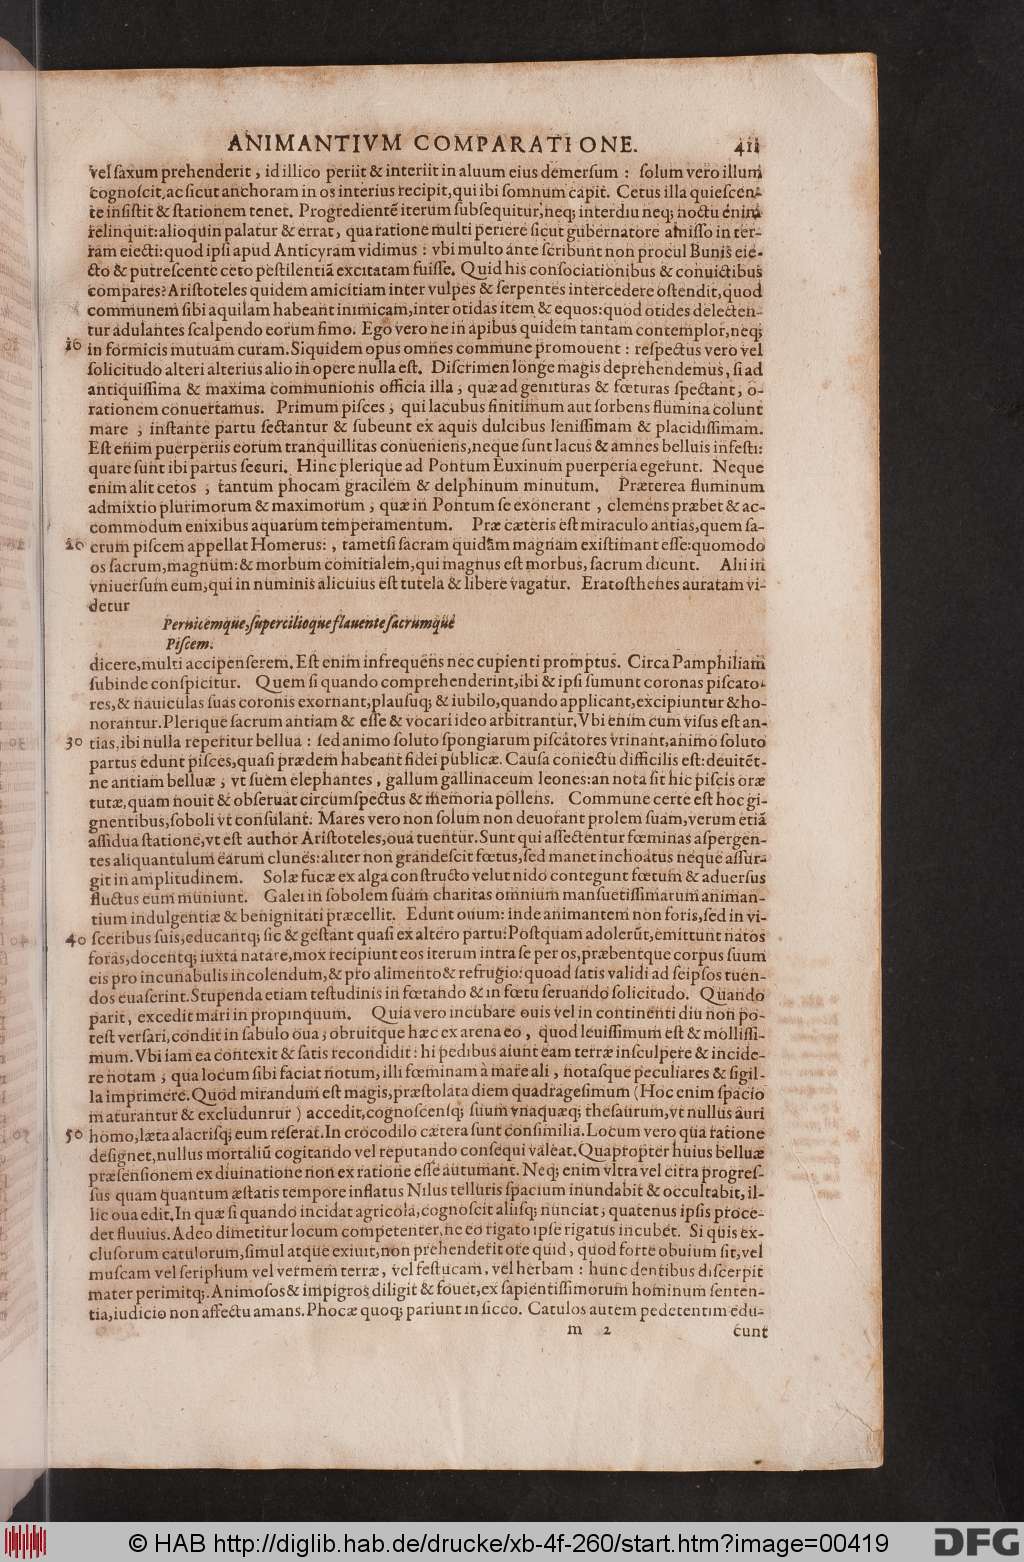 ANIMANTIVM COMPARATIONE. 411
vel saxum prehenderit, id illico periit & interiit in aluum eius demersum : solum vero illum
cognoscit, ac sicut anchoram in os interius recipit, qui ibi somnum capit. Cetus illa quiescen-
te insistit & stationem tenet. Progredientē iterum subsequitur, neq; interdiu neq; noctu enim
relinquit: alioquin palatur & errat, qua ratione multi periere sicut gubernatore amisso in ter-
ram eiecti: quod ipsi apud Anticyram vidimus : vbi multo ante scribunt non procul Bunis eie-
cto & putrescente ceto pestilentiā excitatam fuisse. Quid his consociationibus & conuictibus
compares? Aristoteles quidem amicitiam inter vulpes & serpentes intercedere ostendit, quod
communem sibi aquilam habeant inimicam, inter otidas item & equos: quod otides delecten-
tur adulantes scalpendo eorum fimo. Ego vero ne in apibus quidem tantam contemplor, neq;
10 in formicis mutuam curam. Siquidem opus omnes commune promouent : respectus vero vel
solicitudo alteri alterius alio in opere nulla est. Discrimen longe magis deprehendemus, si ad
antiquissima & maxima communionis officia illa, quæ ad genituras & fœturas spectant, o-
rationem conuertamus. Primum pisces, qui lacubus finitimum aut sorbens flumina colunt
mare, instante partu sectantur & subeunt ex aquis dulcibus lenissimam & placidissimam.
Est enim puerperiis eorum tranquillitas conueniens, neque sunt lacus & amnes belluis infesti:
quare sunt ibi partus securi. Hinc plerique ad Pontum Euxinum puerperia egerunt. Neque
enim alit cetos, tantum phocam gracilem & delphinum minutum. Præterea fluminum
admixtio plurimorum & maximorum, quæ in Pontum se exonerant, clemens præbet & ac-
commodum enixibus aquarum temperamentum. Præ cæteris est miraculo antias, quem sa-
20 crum piscem appellat Homerus: , tametsi sacram quidam magnam existimant esse: quomodo
os sacrum, magnum: & morbum comitialem, qui magnus est morbus, sacrum dicunt. Alii in
vniuersum eum, qui in numinis alicuius est tutela & libere vagatur. Eratosthenes auratam vi-
detur
Pernicemque, supercilioque flauente sacrumque
Piscem.
dicere, multi accipenserem. Est enim infrequens nec cupienti promptus. Circa Pamphiliam
subinde conspicitur. Quem si quando comprehenderint, ibi & ipsi sumunt coronas piscato-
res, & nauiculas suas coronis exornant, plausuq; & iubilo, quando applicant, excipiuntur & ho-
norantur. Plerique sacrum antiam & esse & vocari ideo arbitrantur. Vbi enim cum visus est an-
30 tias, ibi nulla reperitur bellua : sed animo soluto spongiarum piscatores vrinant, animo soluto
partus edunt pisces, quasi prædem habeant fidei publicæ. Causa coniectu difficilis est: deuitēt-
ne antiam belluæ, vt suem elephantes, gallum gallinaceum leones: an nota sit hic piscis oræ
tutæ, quam nouit & obseruat circumspectus & memoria pollens. Commune certe est hoc gi-
gnentibus, soboli vt consulant. Mares vero non solum non deuorant prolem suam, verum etiā
assidua statione, vt est author Aristoteles, oua tuentur. Sunt qui assectentur fœminas aspergen-
tes aliquantulum earum clunes: aliter non grandescit fœtus, sed manet inchoatus neque assur-
git in amplitudinem. Solæ fucæ ex alga constructo velut nido contegunt fœtum & aduersus
fluctus eum muniunt. Galei in sobolem suam charitas omnium mansuetissimarum animan-
tium indulgentiæ & benignitati præcellit. Edunt ouum: inde animantem non foris, sed in vi-
40 sceribus suis, educantq; sic & gestant quasi ex altero partu: Postquam adolerūt, emittunt natos
foras, docentq; iuxta natare, mox recipiunt eos iterum intra se per os, præbentque corpus suum
eis pro incunabulis incolendum, & pro alimento & refrugio: quoad satis validi ad seipsos tuen-
dos euaserint. Stupenda etiam testudinis in fœtando & in fœtu seruando solicitudo. Quando
parit, excedit mari in propinquum. Quia vero incubare ouis vel in continenti diu non po-
test versari, condit in sabulo oua, obruitque hæc ex arena eo, quod leuissimum est & mollissi-
mum. Vbi iam ea contexit & satis recondidit : hi pedibus aiunt eam terræ insculpere & incide-
re notam, qua locum sibi faciat notum, illi fœminam à mare ali, notasque peculiares & sigil-
la imprimere. Quod mirandum est magis, præstolata diem quadragesimum (Hoc enim spacio
maturantur & excludunrur) accedit, cognoscensq; suum vnaquæq; thesaurum, vt nullus auri
50 homo, læta alacrisq; eum reserat. In crocodilo cætera sunt consimilia. Locum vero qua ratione
designet, nullus mortaliū cogitando vel reputando consequi valeat. Quapropter huius belluæ
præsensionem ex diuinatione non ex ratione esse autumant. Neq; enim vltra vel citra progres-
sus quam quantum æstatis tempore inflatus Nilus telluris spacium inundabit & occultabit, il-
lic oua edit. In quæ si quando incidat agricola, cognoscit aliisq; nunciat, quatenus ipsis proce-
det fluuius. Adeo dimetitur locum competenter, ne eo rigato ipse rigatus incubet. Si quis ex-
clusorum catulorum, simul atque exiuit, non prehenderit ore quid, quod forte obuium sit, vel
muscam vel seriphum vel vermem terræ, vel festucam, vel herbam : hunc dentibus discerpit
mater perimitq;. Animosos & impigros diligit & fouet, ex sapientissimorum hominum senten-
tia, iudicio non affectu amans. Phocæ quoq; pariunt in sicco. Catulos autem pedetentim edu-
m 2 cunt
© HAB http://diglib.hab.de/drucke/xb-4f-260/start.htm?image=00419
DFG